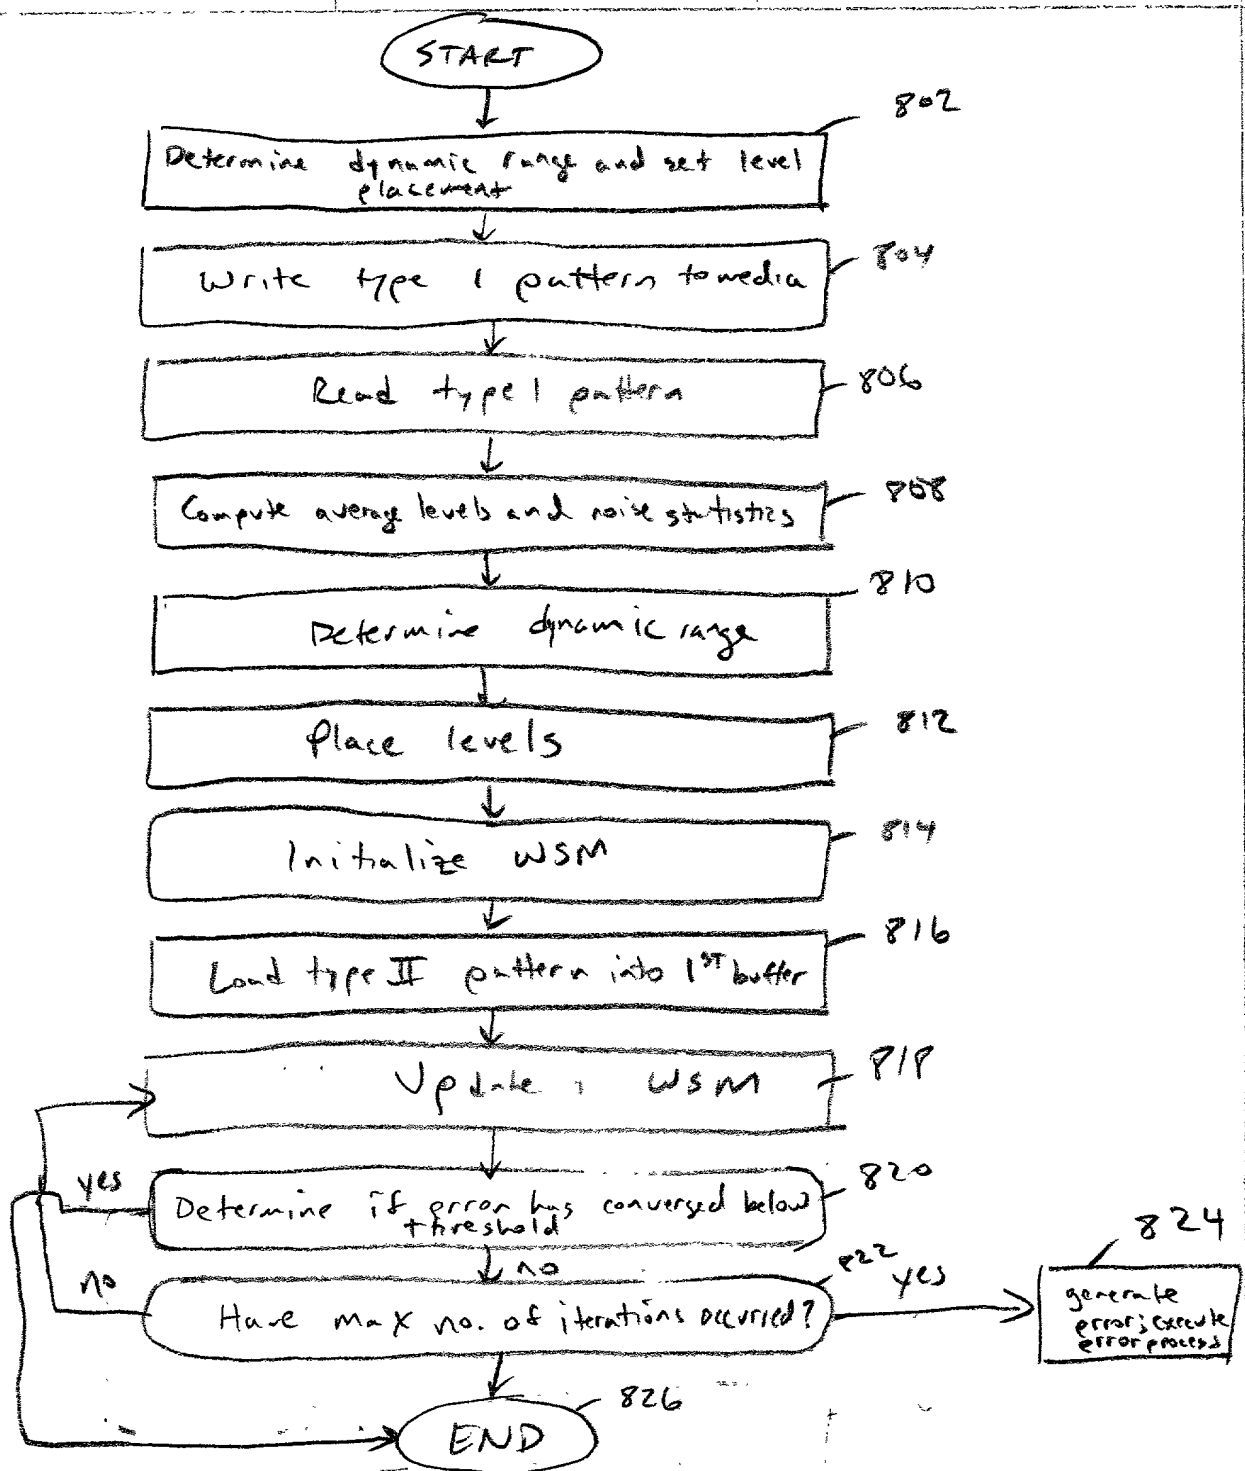 START
802
Determine dynamic range and set level
placement
804
Write type 1 pattern to media
806
Read type 1 pattern
808
Compute average levels and noise statistics
810
Determine dynamic range
812
Place levels
814
Initialize WSM
816
Load type II pattern into 1ST buffer
818
Update WSM
820
yes
Determine if error has converged below
threshold
no
822
824
no
yes
Have max no. of iterations occurred?
generate
error; execute
error process
826
END